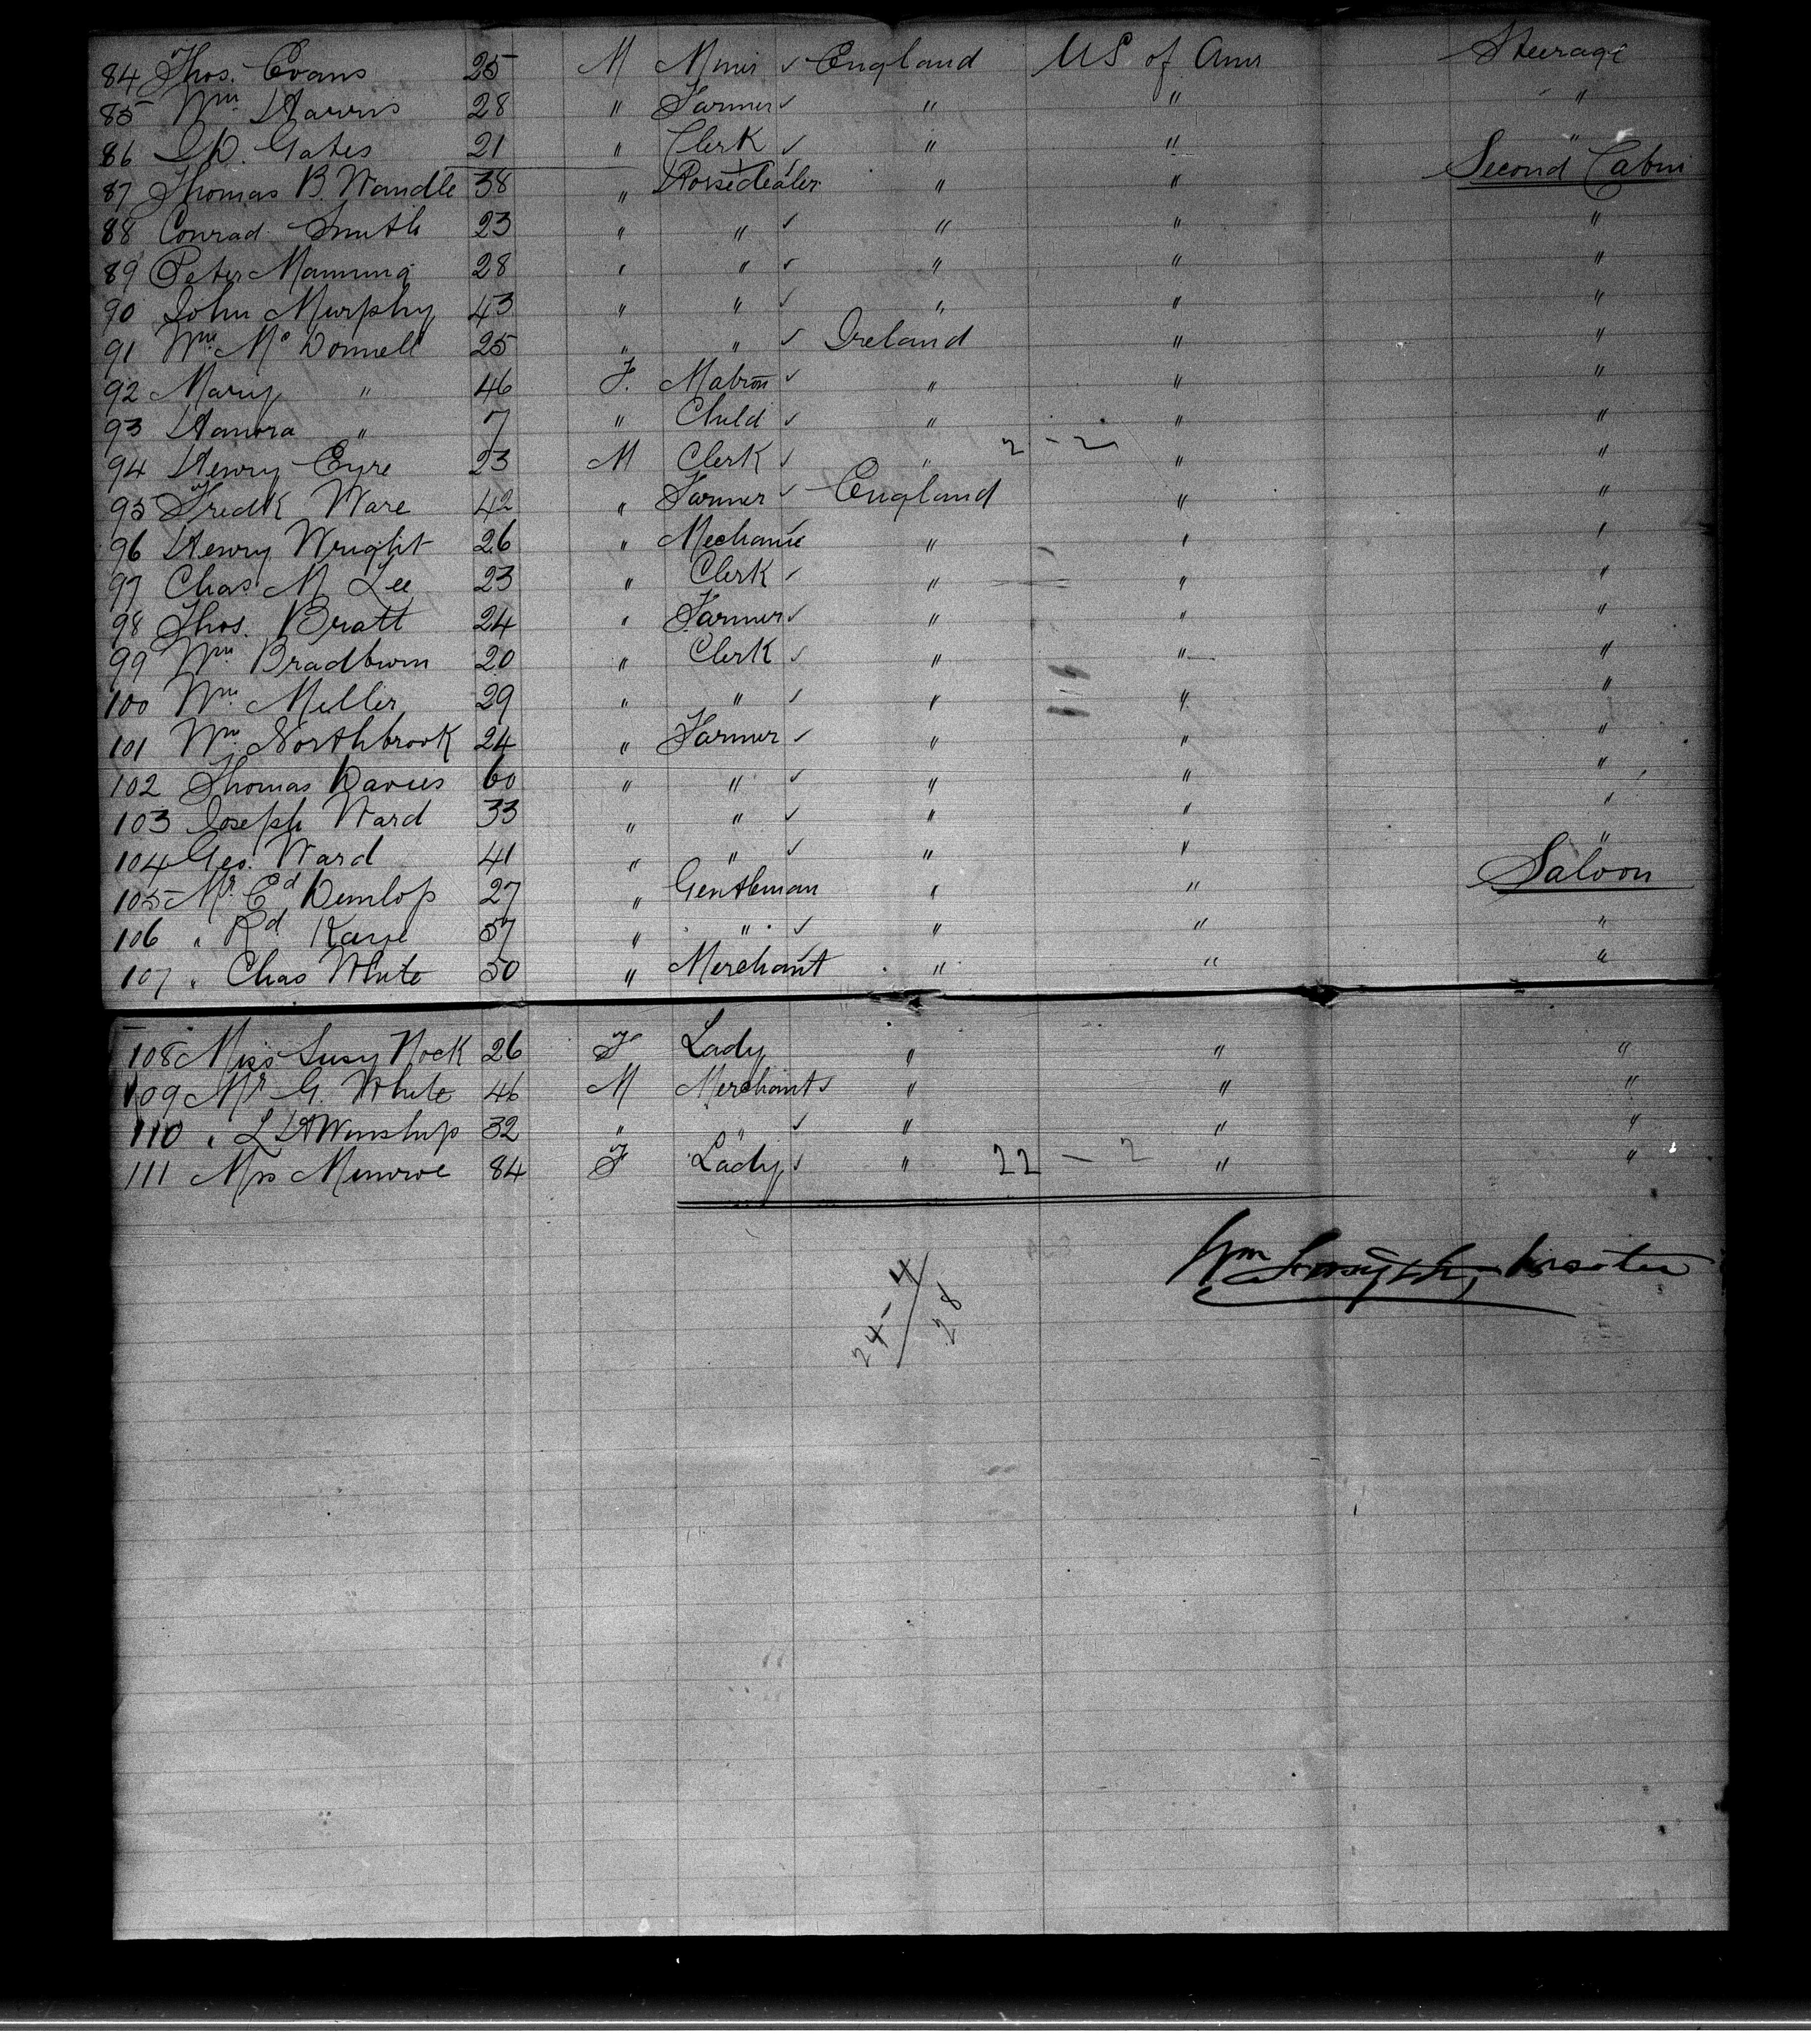 84 Thos. Evans 25 M Miner England US of Amr Steerage
85 Wm Harris 28 " Farmer " " "
86 D. Gates 21 " Clerk " " "
87 Thomas B. Wandle 38 " Horsedealer " " Second Cabin
88 Conrad Smith 23 " " " " "
89 Peter Manning 28 " " " " "
90 John Murphy 43 " " " " "
91 Wm Mc Donnell 25 " " Ireland " "
92 Mary " 46 F. Matron " " "
93 Hanora " 7 " Child " " "
94 Henry Eyre 23 M Clerk " 2 - 2 " "
95 Fredk Ware 42 " Farmer England " "
96 Henry Wright 26 " Mechanic " " "
97 Chas M Lee 23 " Clerk " " "
98 Thos. Bratt 24 " Farmer " " "
99 Wm Bradburn 20 " Clerk " " "
100 Wm Meller 29 " " " " "
101 Wm Northbrook 24 " Farmer " " "
102 Thomas Davies 60 " " " " "
103 Joseph Ward 33 " " " " "
104 Geo. Ward 41 " " " " "
105 Mr. Ed Dunlop 27 " Gentleman " " Saloon
106 " Rd Kaye 57 " " " " "
107 " Chas White 50 " Merchant " " "
108 Miss Susy Nock 26 F Lady " " "
109 Mr G. White 46 M Merchant " " "
110 " L H Winship 32 " " " " "
111 Mrs Munroe 84 F Lady " 22 - 2 " "
Wm Forsyth, Master
24-4
28